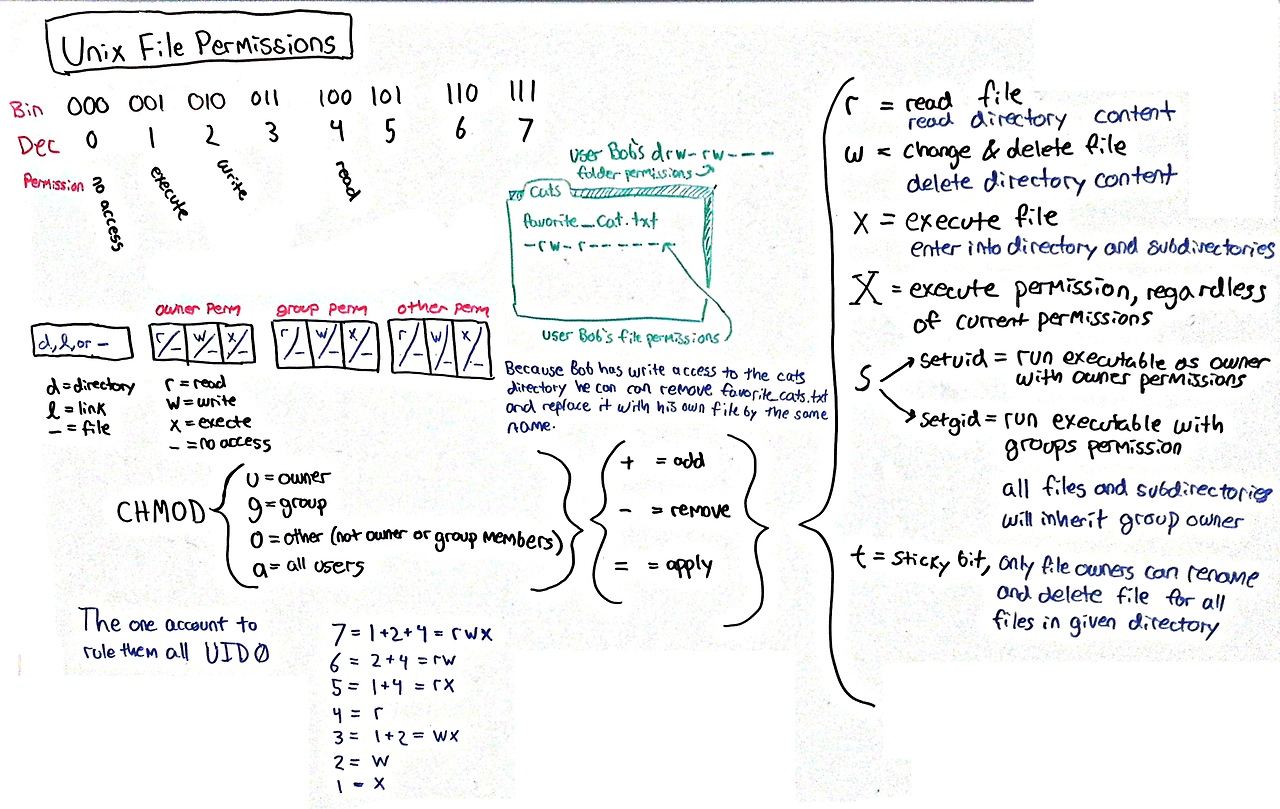 Unix File Permissions
Bin 000 001 010 011 100 101 110 111
Dec 0 1 2 3 4 5 6 7
Permission no access execute write read
user Bob's drw-rw----
folder permissions
cats
favorite_cat.txt
-rw-r------
user Bob's file permissions
owner perm group perm other perm
d, l, or - r/- w/- x/- r/- w/- x/- r/- w/- x/-
d = directory
l = link
- = file
r = read
w = write
x = execte
- = no access
Because Bob has write access to the cats
directory he can can remove favorite_cats.txt
and replace it with his own file by the same
name.
CHMOD
U = owner
g = group
O = other (not owner or group members)
a = all users
+ = add
- = remove
= = apply
r = read file
read directory content
w = change & delete file
delete directory content
x = execute file
enter into directory and subdirectories
X = execute permission, regardless
of current permissions
S
setuid = run executable as owner
with owner permissions
setgid = run executable with
groups permission
all files and subdirectories
will inherit group owner
t = sticky bit, only file owners can rename
and delete file for all
files in given directory
The one account to
rule them all UID 0
7 = 1+2+4 = rwx
6 = 2+4 = rw
5 = 1+4 = rx
4 = r
3 = 1+2 = wx
2 = w
1 - x